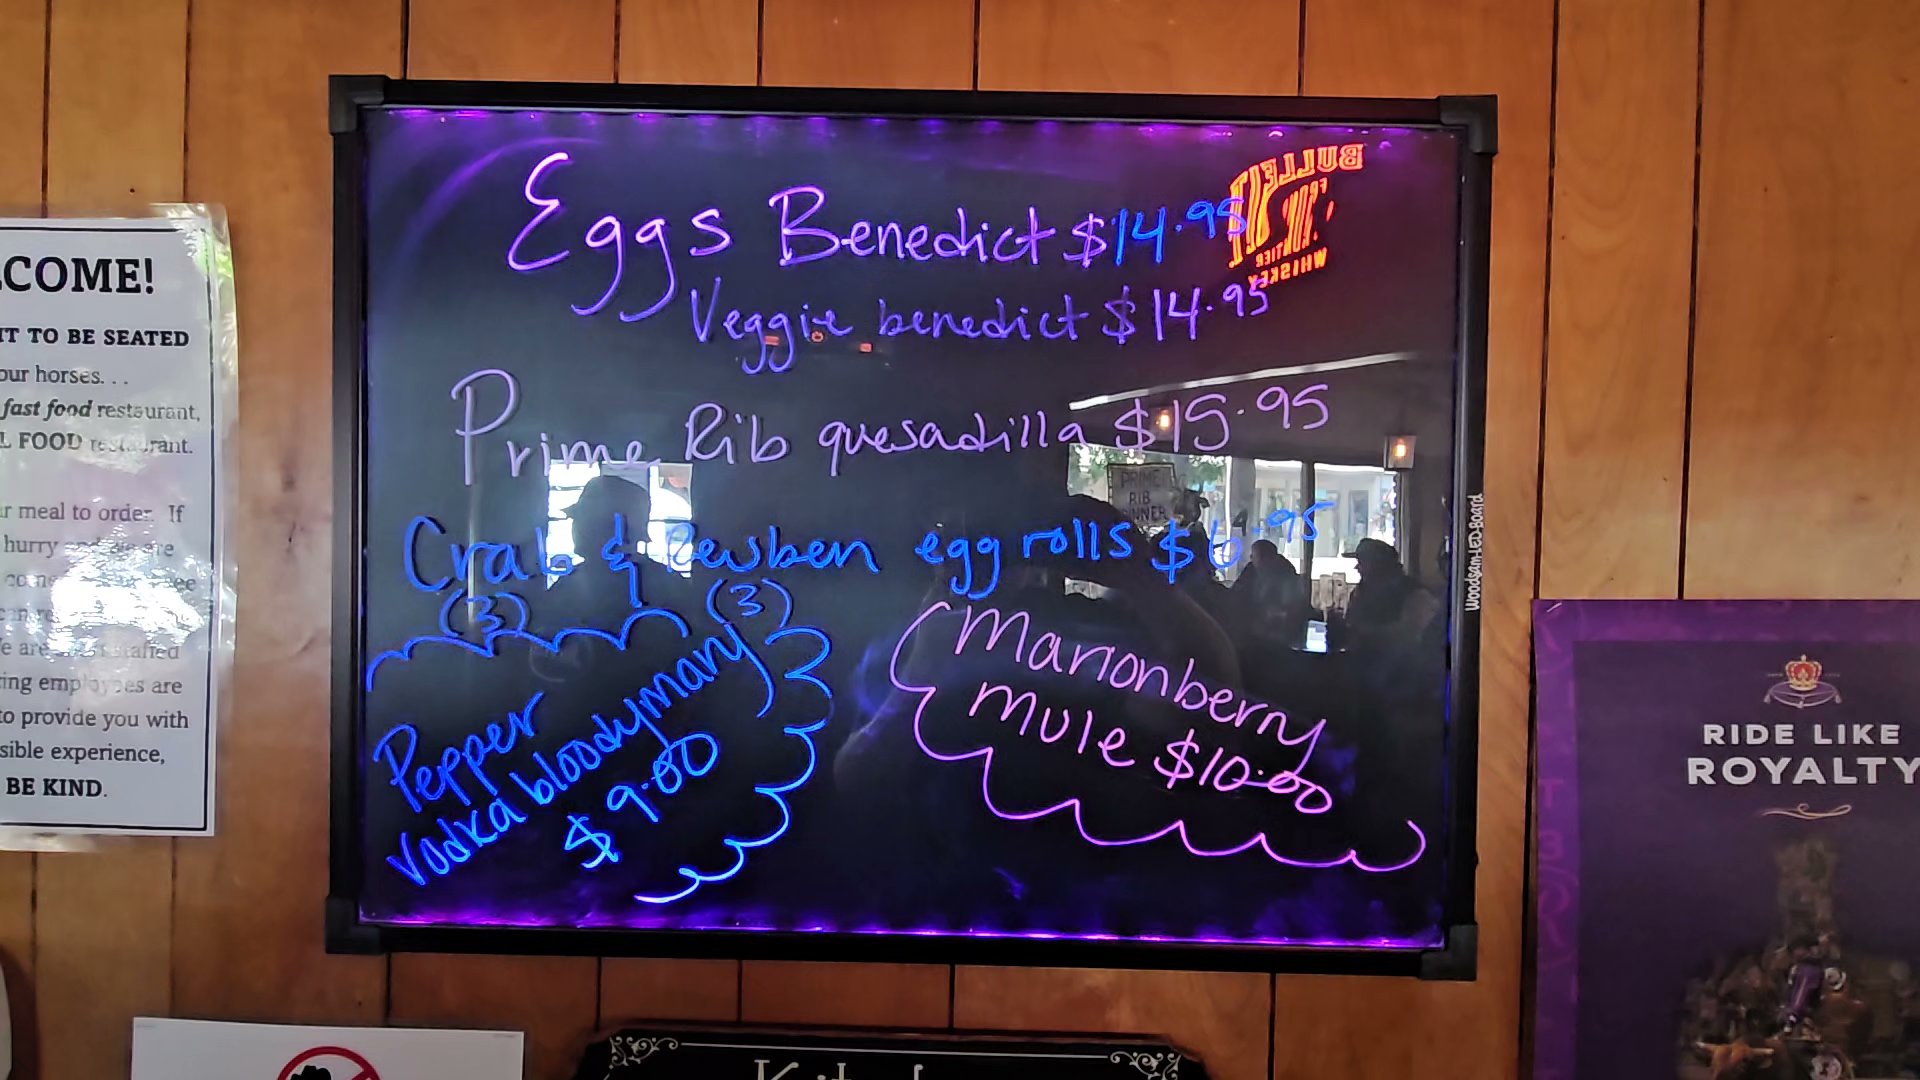 COME!
IT TO BE SEATED
our horses. . .
fast food restaurant,
L FOOD restaurant.
r meal to order. If
hurry
are
ing employees are
to provide you with
sible experience,
BE KIND.
Eggs Benedict $14.95
Veggie benedict $14.95
Prime Rib quesadilla $15.95
Crab & Reuben egg rolls $6.95
(3) (3)
Pepper
vodka bloodymary
$9.00
Marionberry
Mule $10.00
BULLEIT
FRONTIER
WHISKEY
PRIME
RIB
DINNER
Woodsam LED Board
RIDE LIKE
ROYALTY